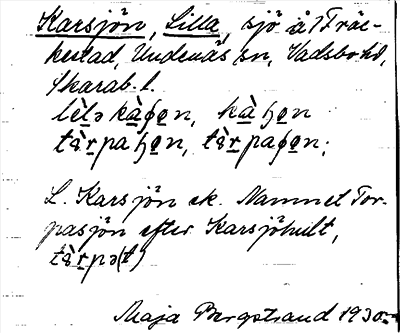 Karsjön, Lilla, sjö å Fräc-
kestad, Undenäs sn, Vadsbo hd,
Skarab. l.
lɛ̀lə kàɧo̱n, kàɧo̱n
tɛ̀r̲paɧo̱n, tɛ̀r̲paɧo̱n;
L. Karsjön ek. Namnet Tor-
pasjön efter Karsjöhult,
tɛ̀r̲pə(t)
Maja Bergstrand 1930.